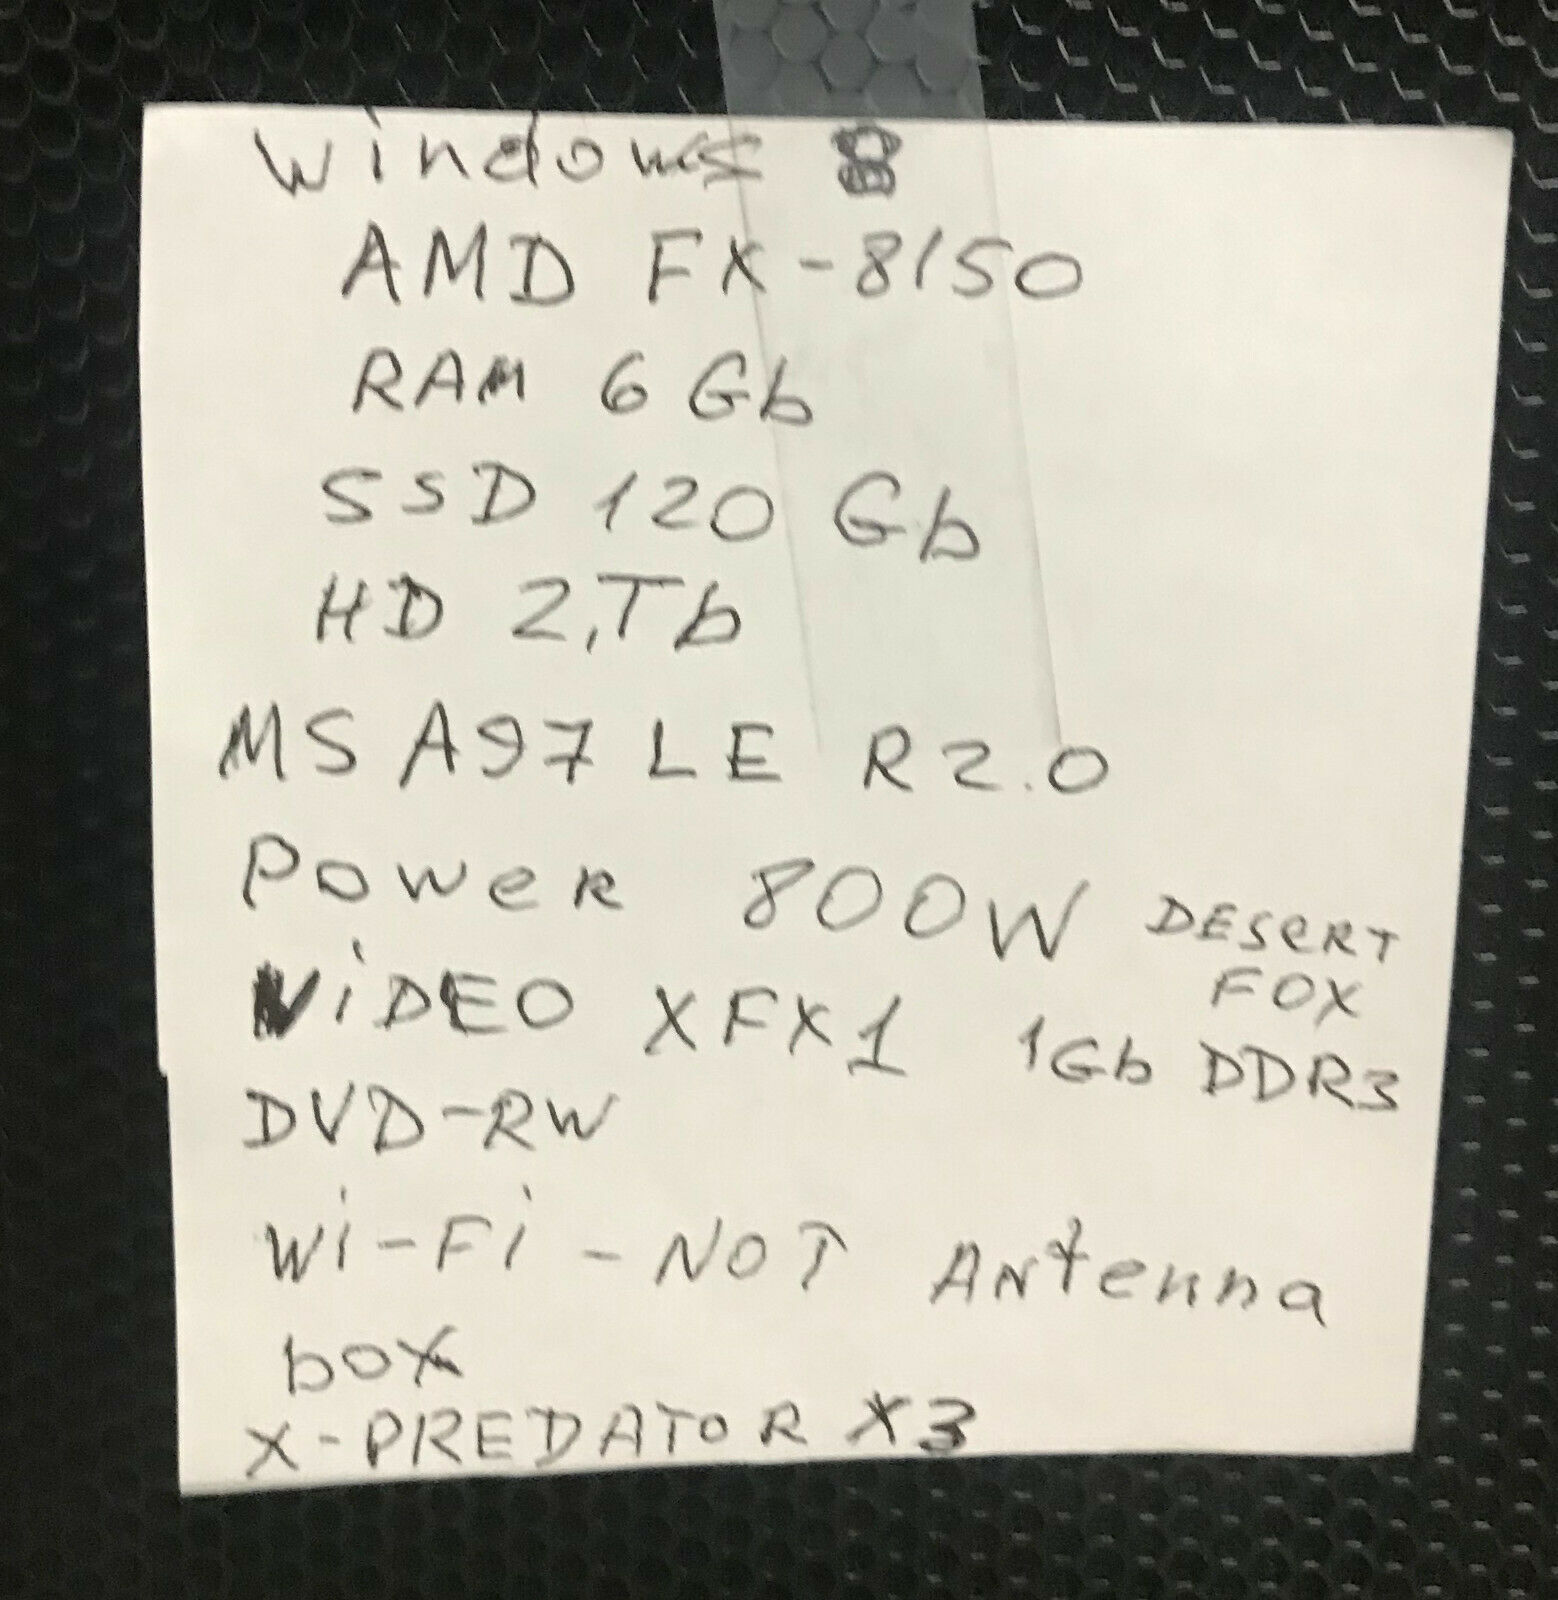 Windows 8
AMD FX-8150
RAM 6 Gb
SSD 120 Gb
HD 2,Tb
MS A97 LE R2.0
Power 800W DESERT
FOX
ViDEO XFX1 1Gb DDR3
DVD-RW
Wi-Fi - NOT Antenna
box
X-PREDATOR X3